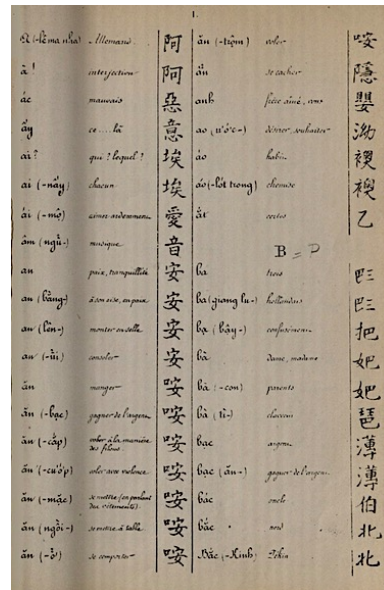 1.
A (-lê ma nha) Allemand 阿
à! interjection 阿
ác mauvais 惡
ấy ce....là 意
ai? qui? lequel? 埃
ai (-nấy) chacun 埃
ái (-mộ) aimer ardemment 愛
âm (ngũ-) musique 音
an paix, tranquillité 安
an (bằng-) à son aise, en paix 安
an (lên-) monter en selle 安
an (-ủi) consoler 安
ăn manger 咹
ăn (-bạc) gagner de l'argent 咹
ăn (-cắp) voler à la manière des filous. 咹
ăn (-cướp) voler avec violence 咹
ăn (-mặc) se mettre (en parlant des vêtements) 咹
ăn (ngồi-) se mettre à table 咹
ăn (-ở) se comporter 咹
ăn (-trộm) voler 咹
ẩn se cacher 隱
anh frère aîné, vous 嬰
ao (ước-) désirer, souhaiter 泑
áo habit 襖
áo (-lót trong) chemise 襖
ắt certes 乙
B = P
ba trois 𠀧
ba (giong lu-) hollandais 𠀧
bạ (bậy-) confusément 把
bà dame, madame 妑
bà (-con) parents 妑
bà (tì-) 琶
bạc argent 薄
bạc (ăn-) gagner de l'argent 薄
bác oncle 伯
bắc nord 北
Bắc (-Kinh) Pékin 北